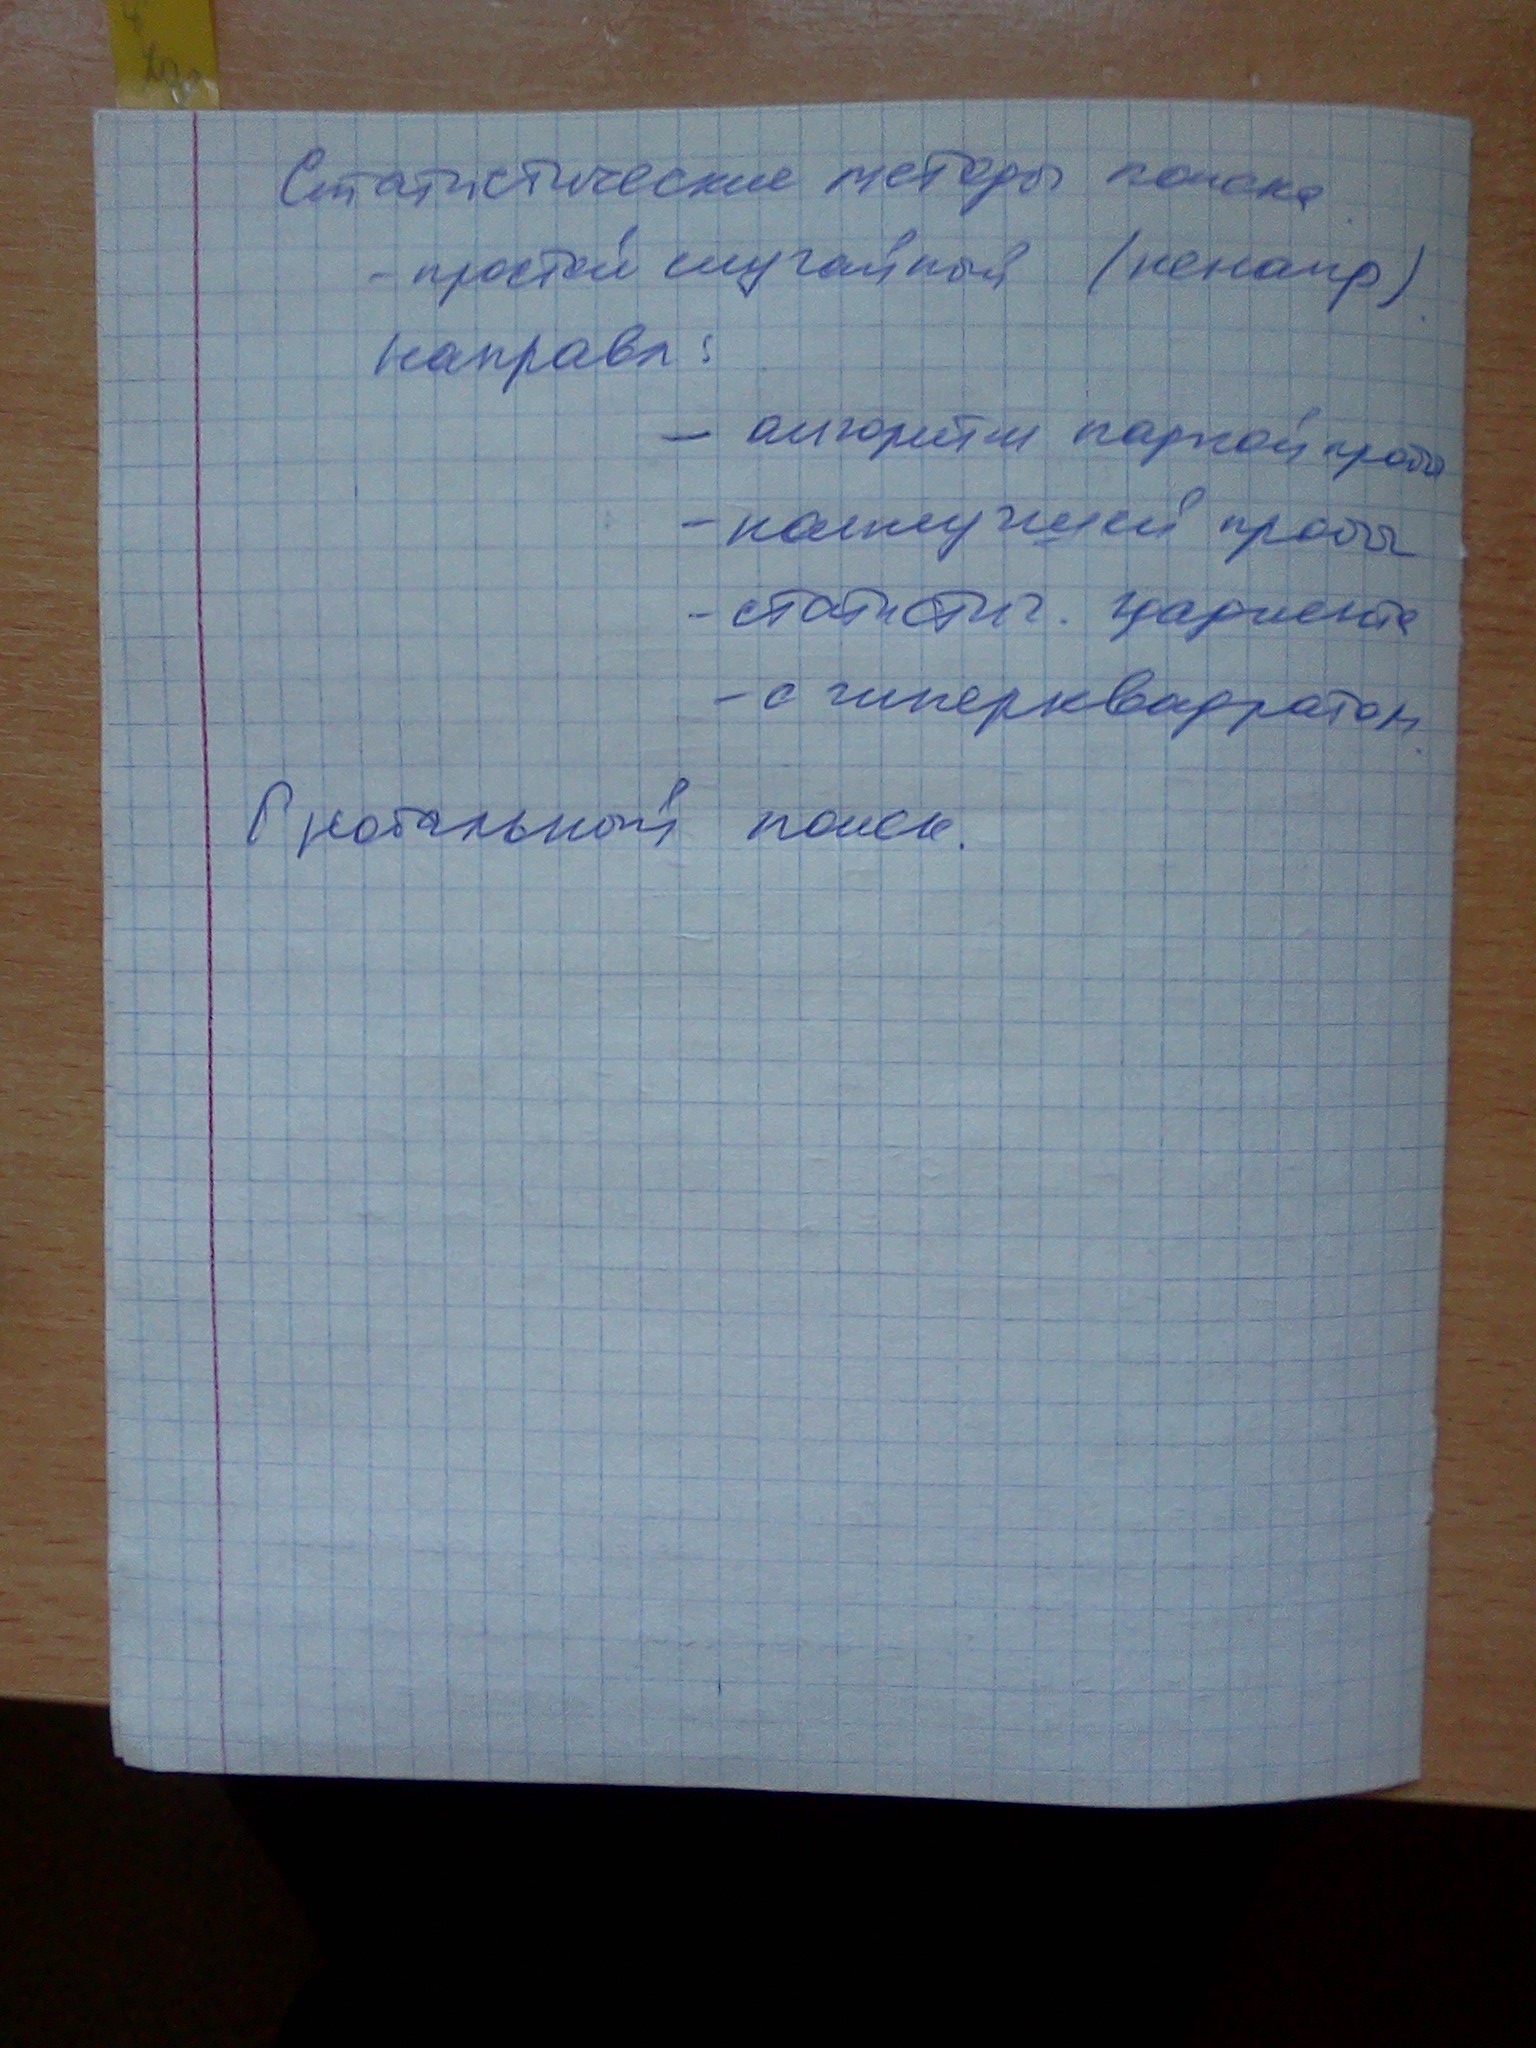 Статистические методы поиска.
- простой случайный (ненапр).
направл:
- алгоритм парной пробы
- наилучшей пробы
- статистич. градиента
- с гиперквадратом.
Глобальный поиск.